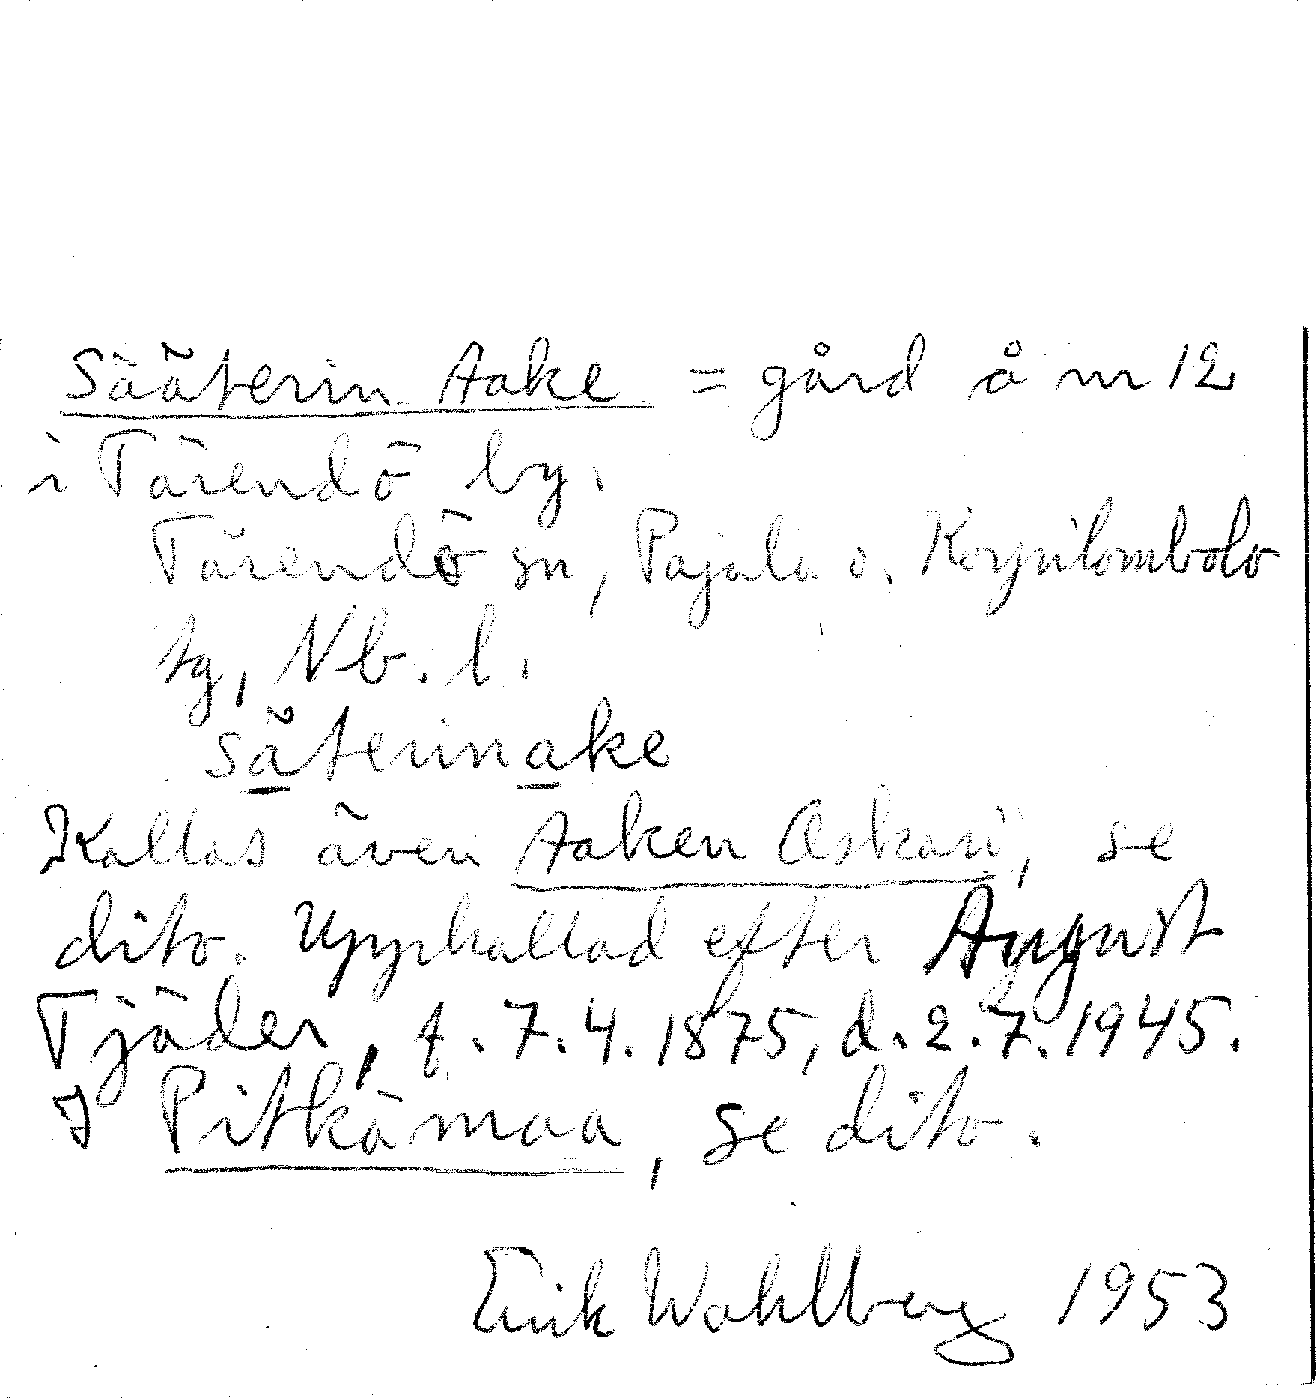 Sääterin Aake = gård å nr 12
i Tärendö by.
Tärendö sn, Pajala o. Korpilombolo
tg, Nb. l.
säterinake
Kallas även Aaken Oskari, se
dito. Uppkallad efter August
Tjäder, f. 7.4.1875, d. 2.7.1945.
I Pitkämaa, se dito.
Erik Wahlberg 1953